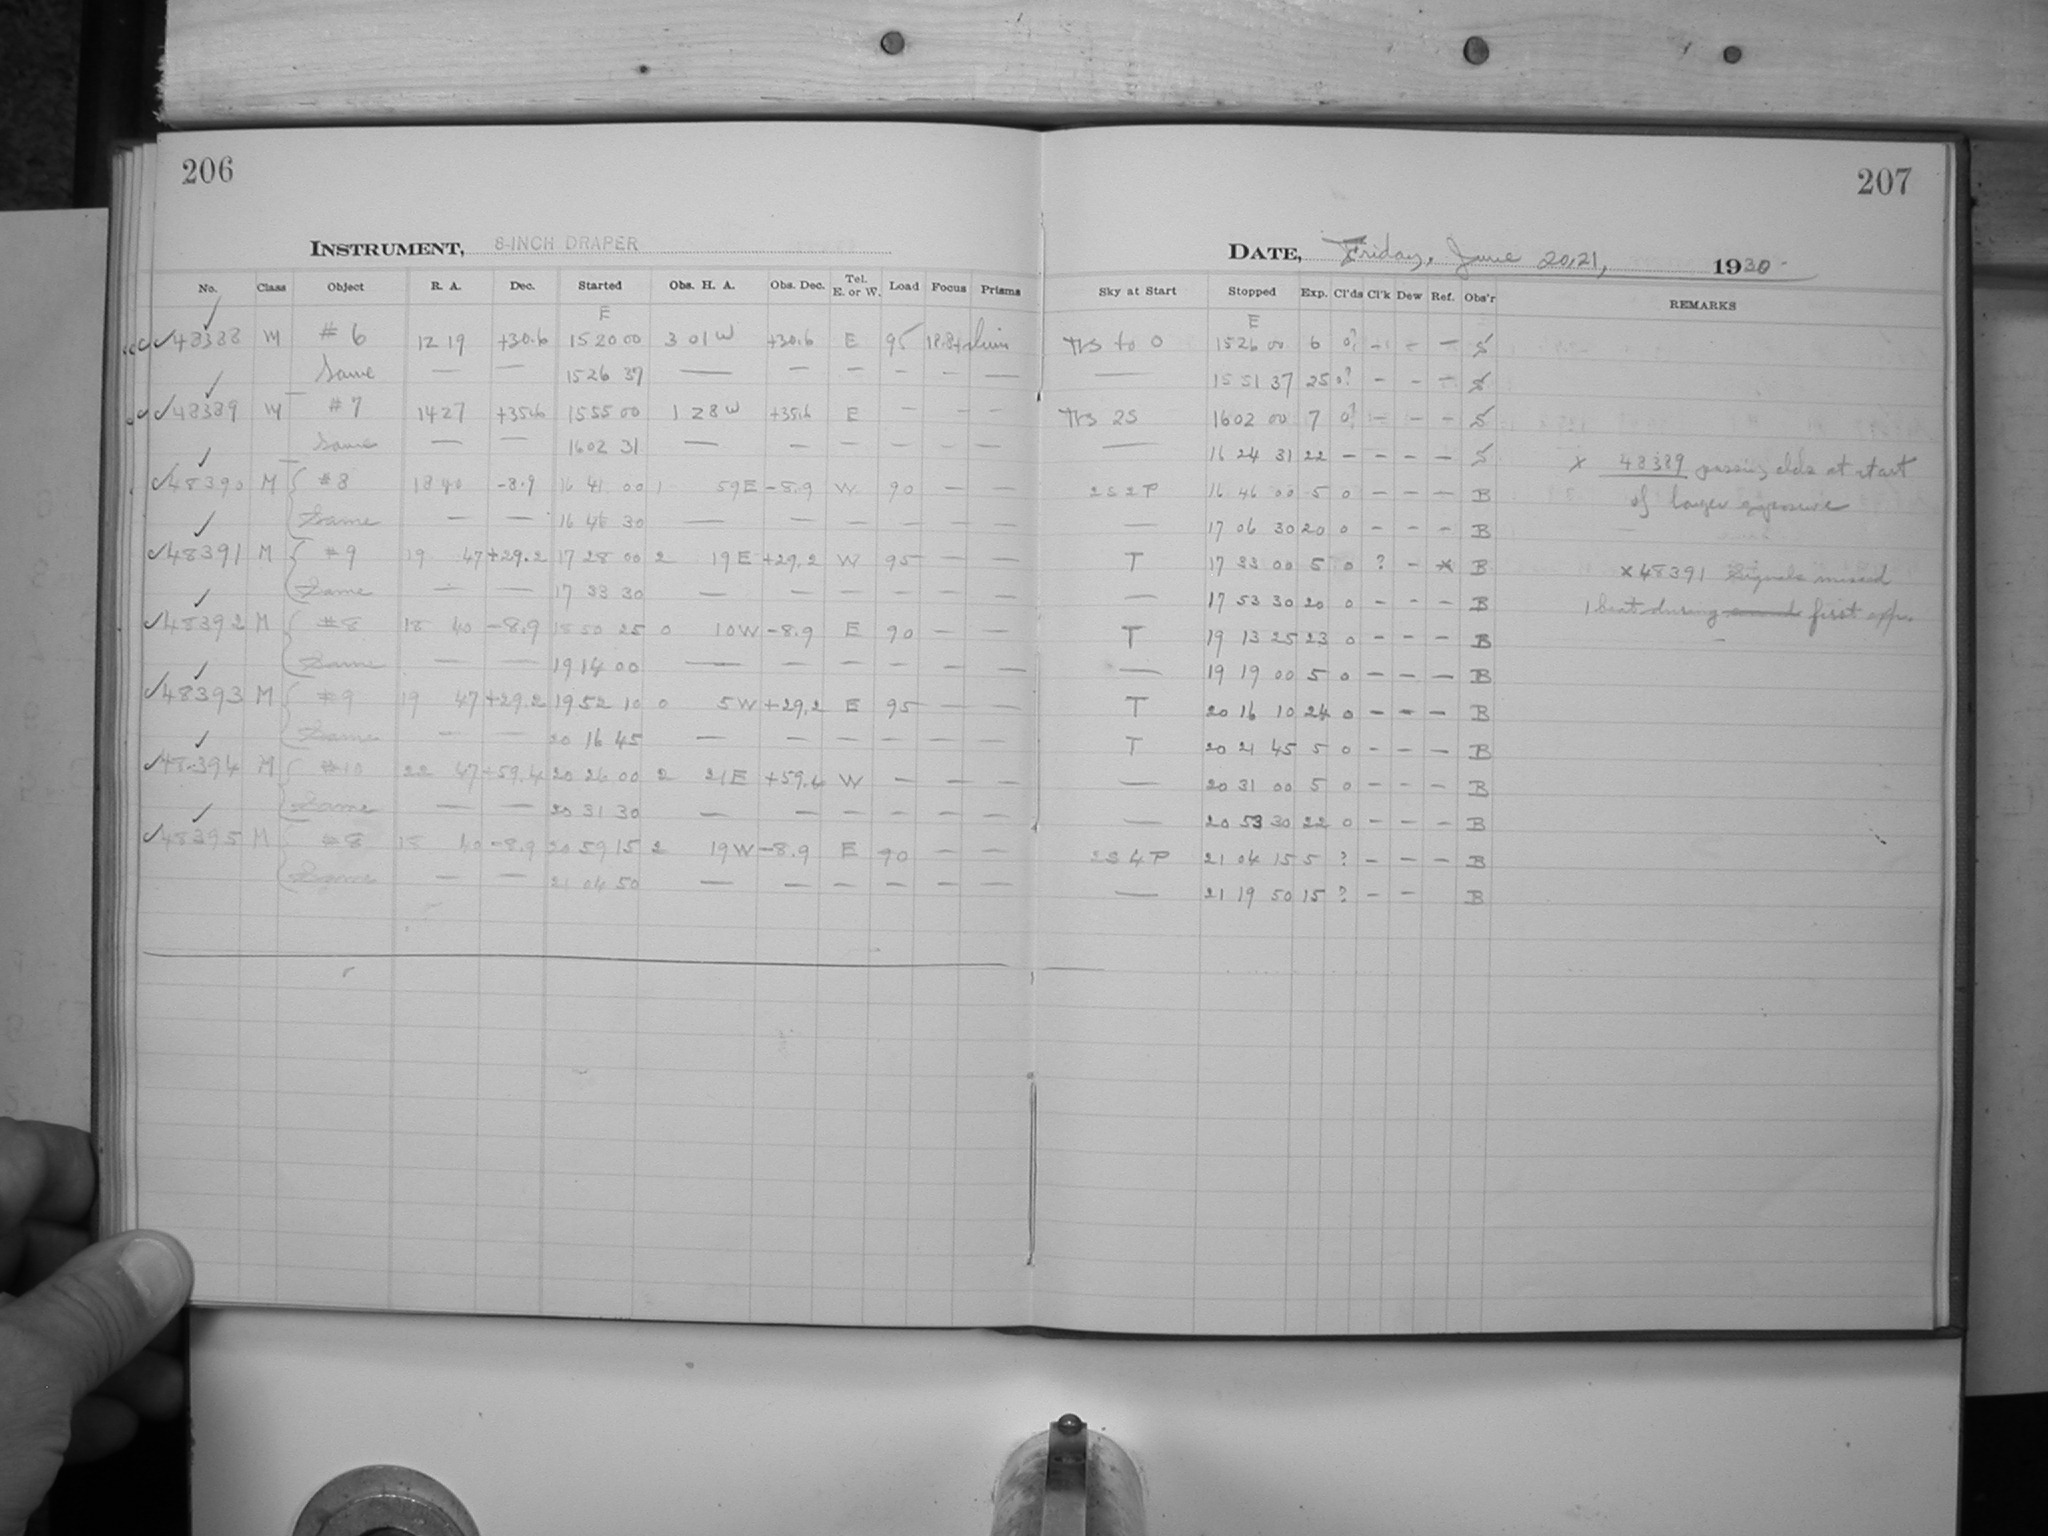 206
INSTRUMENT, 8-INCH DRAPER
No. Class Object R. A. Dec. Started Obs. H. A. Obs. Dec. Tel. E. or W. Load Focus Prisms
E
48388 M #6 12 19 +30.6 15 20 00 3 01 W +30.6 E 95
Same — — 15 26 37 — — — — — —
48389 M #7 14 27 +35.6 15 55 00 1 28 W +35.6 E — — —
Same — — 16 02 31 — — — — — —
48390 M #8 18 40 -8.9 16 41 00 1 59 E -8.9 W 90 — —
Same — — 16 46 30 — — — — — —
48391 M #9 19 47 +29.2 17 28 00 2 19 E +29.2 W 95 — —
Same — — 17 33 30 — — — — — —
48392 M #8 18 40 -8.9 18 50 25 0 10 W -8.9 E 90 — —
Same — — 19 14 00 — — — — — —
48393 M #9 19 47 +29.2 19 52 10 0 5 W +29.2 E 95 — —
Same — — 20 16 45 — — — — — —
48394 M #10 22 47 +59.4 20 26 00 2 21 E +59.4 W — — —
Same — — 20 31 30 — — — — — —
48395 M #8 18 40 -8.9 20 59 15 2 19 W -8.9 E 90 — —
Same — — 21 04 50 — — — — — —
207
DATE, Friday, June 20,21, 1930
Sky at Start Stopped Exp. Cl'ds Cl'k Dew Ref. Obs'r REMARKS
E
to 0 15 26 00 6 0? — — — S
— 15 51 37 25 0? — — — S
2S 16 02 00 7 0? — — — S
— 16 24 31 22 — — — — S
x 48389 passing clds at start
2S 2P 16 46 00 5 0 — — — B
of longer exposure
— 17 06 30 20 0 — — — B
T 17 33 00 5 0 ? — x B
x 48391 Signals missed
— 17 53 30 20 0 — — — B
1 beat during first exp.
T 19 13 25 23 0 — — — B
— 19 19 00 5 0 — — — B
T 20 16 10 24 0 — — — B
T 20 21 45 5 0 — — — B
— 20 31 00 5 0 — — — B
— 20 53 30 22 0 — — — B
2S 4P 21 04 15 5 ? — — — B
— 21 19 50 15 ? — — B